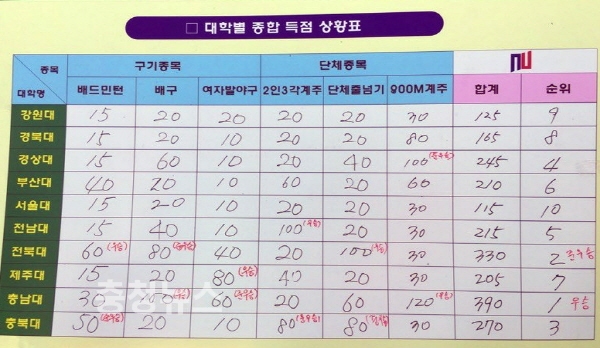 □ 대학별 종합 득점 상황표
종목 구기종목 단체종목 NU
대학명 배드민턴 배구 여자발야구 2인3각계주 단체줄넘기 900M계주 합계 순위
강원대 15 20 20 20 20 30 125 9
경북대 15 20 10 20 20 80 165 8
경상대 15 60 10 20 40 100(준우승) 245 4
부산대 40 20 10 60 20 60 210 6
서울대 15 20 10 20 20 30 115 10
전남대 15 40 10 100(우승) 20 30 215 5
전북대 60(우승) 80(준우승) 40 20 100(우승) 30 330 2 준우승
제주대 15 20 80(우승) 40 20 30 205 7
충남대 30 100(우승) 60(준우승) 20 60 120(우승) 390 1 우승
충북대 50(준우승) 20 10 80(준우승) 80(준우승) 30 270 3
충청뉴스